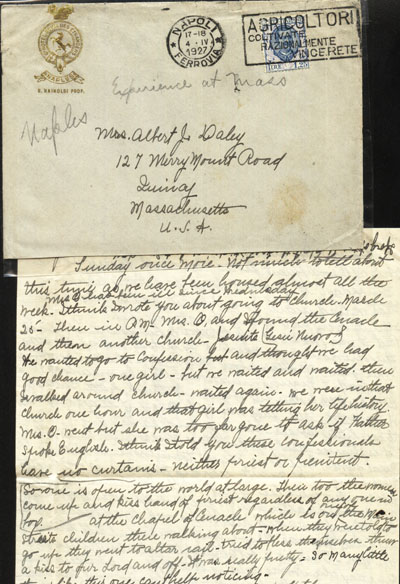 NAPOLI
17-18
4 · IV
1927
FERROVIA
AGRICOLTORI
COLTIVATE
RAZIONALMENTE
VINCERETE
NAPLES
Experience at Mass
Naples
Mrs. Albert J. Daley
127 Merry Mount Road
Quincy
Massachusetts
U.S.A.
Sunday once more - Not much to tell about
this time as we have been housed almost all the
Mrs. O. had been ill since Wednesday
week - I think I wrote you about going to Church - March
25 - Then in A.M. Mrs. O. and I found the Cenacle
and then another church - Jesuits (Gesù Nuovo)
He wanted to go to Confession and thought we had
good chance - one girl - but we waited and waited - then
walked around church - waited again - we were in that
church one hour and that girl was telling her life history
Mrs. O. went but she was too far gone to ask if Father
spoke English. I think I told you these confessionals
have no curtains - neither priest or penitent.
So one is open to the world at large. Then too the women
come up and kiss hand of priest regardless of any one in
at the chapel of Cenacle which is on the Main
Street children then walking about - when they were told to
go up they went to altar rail - tried to
a kiss to our Lord and off. It was really pretty - So many little
this one can't help noticing -